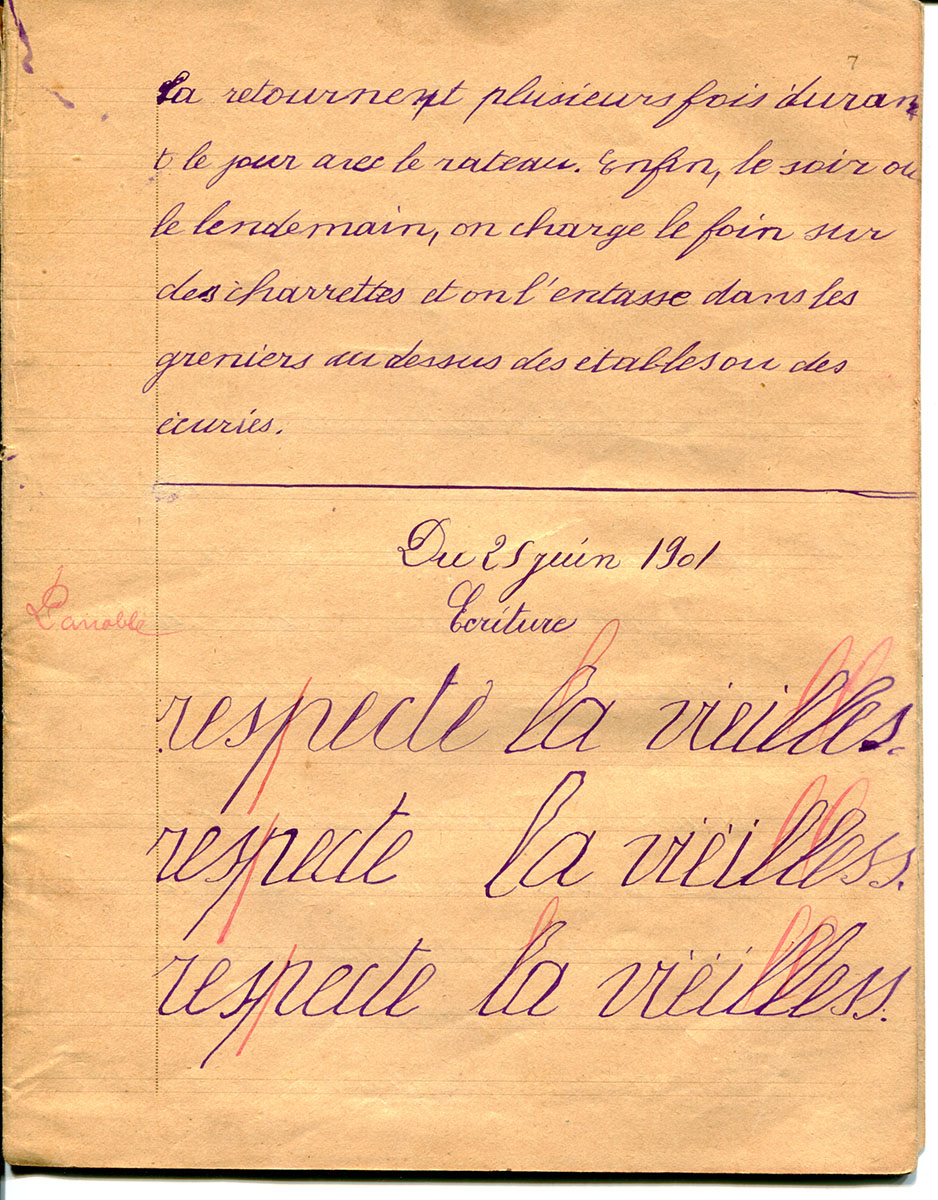 7
la retournent plusieurs fois duran
t le jour avec le rateau. Enfin, le soir ou
le lendemain, on charge le foin sur
des charrettes et on l'entasse dans les
greniers au dessus des étables ou des
écuries.
Du 25 juin 1901
Ecriture
respecte la vieilles.
respecte la vieilless.
respecte la vieilless.